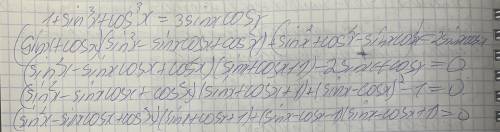 1+sin³x+cos³x = 3sinxcosx
(sinx+cosx)(sin²x-sinxcosx+cos²x)+sin²x+cos²x-sinxcosx=2sinxcosx
(sin²x-sinxcosx+cos²x)(sinx+cosx+1)-2sinx+cosx=0
(sin²x-sinxcosx+cos²x)(sinx+cosx+1)+(sinx-cosx)²-1=0
(sin²x-sinxcosx+cos²x)(sinx+cosx+1)+(sinx-cosx-1)(sinx-cosx+1)=0